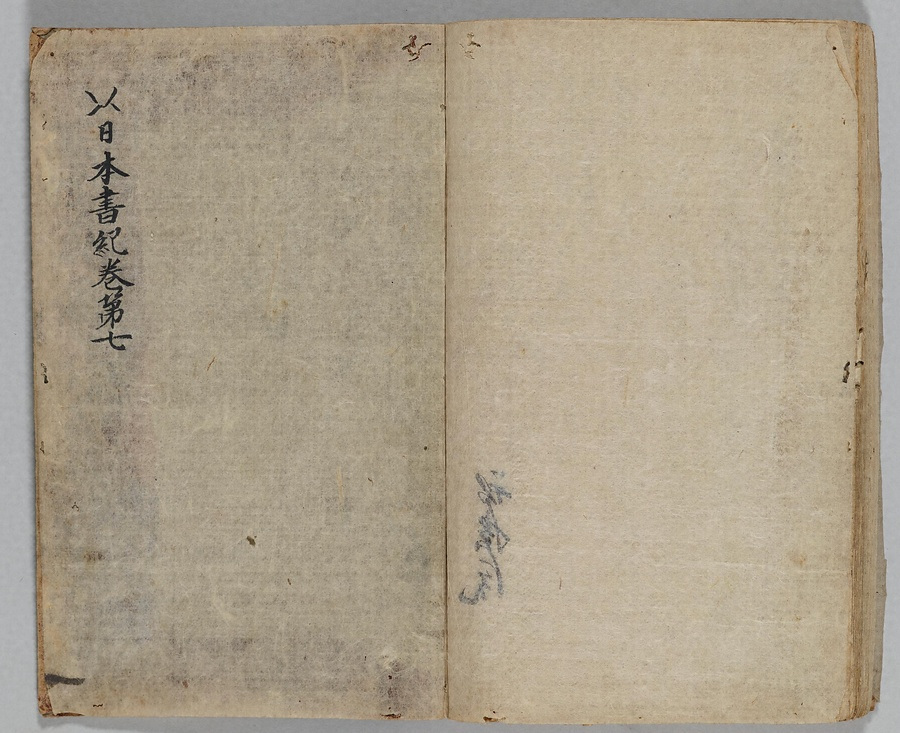 以日本書紀巻第七